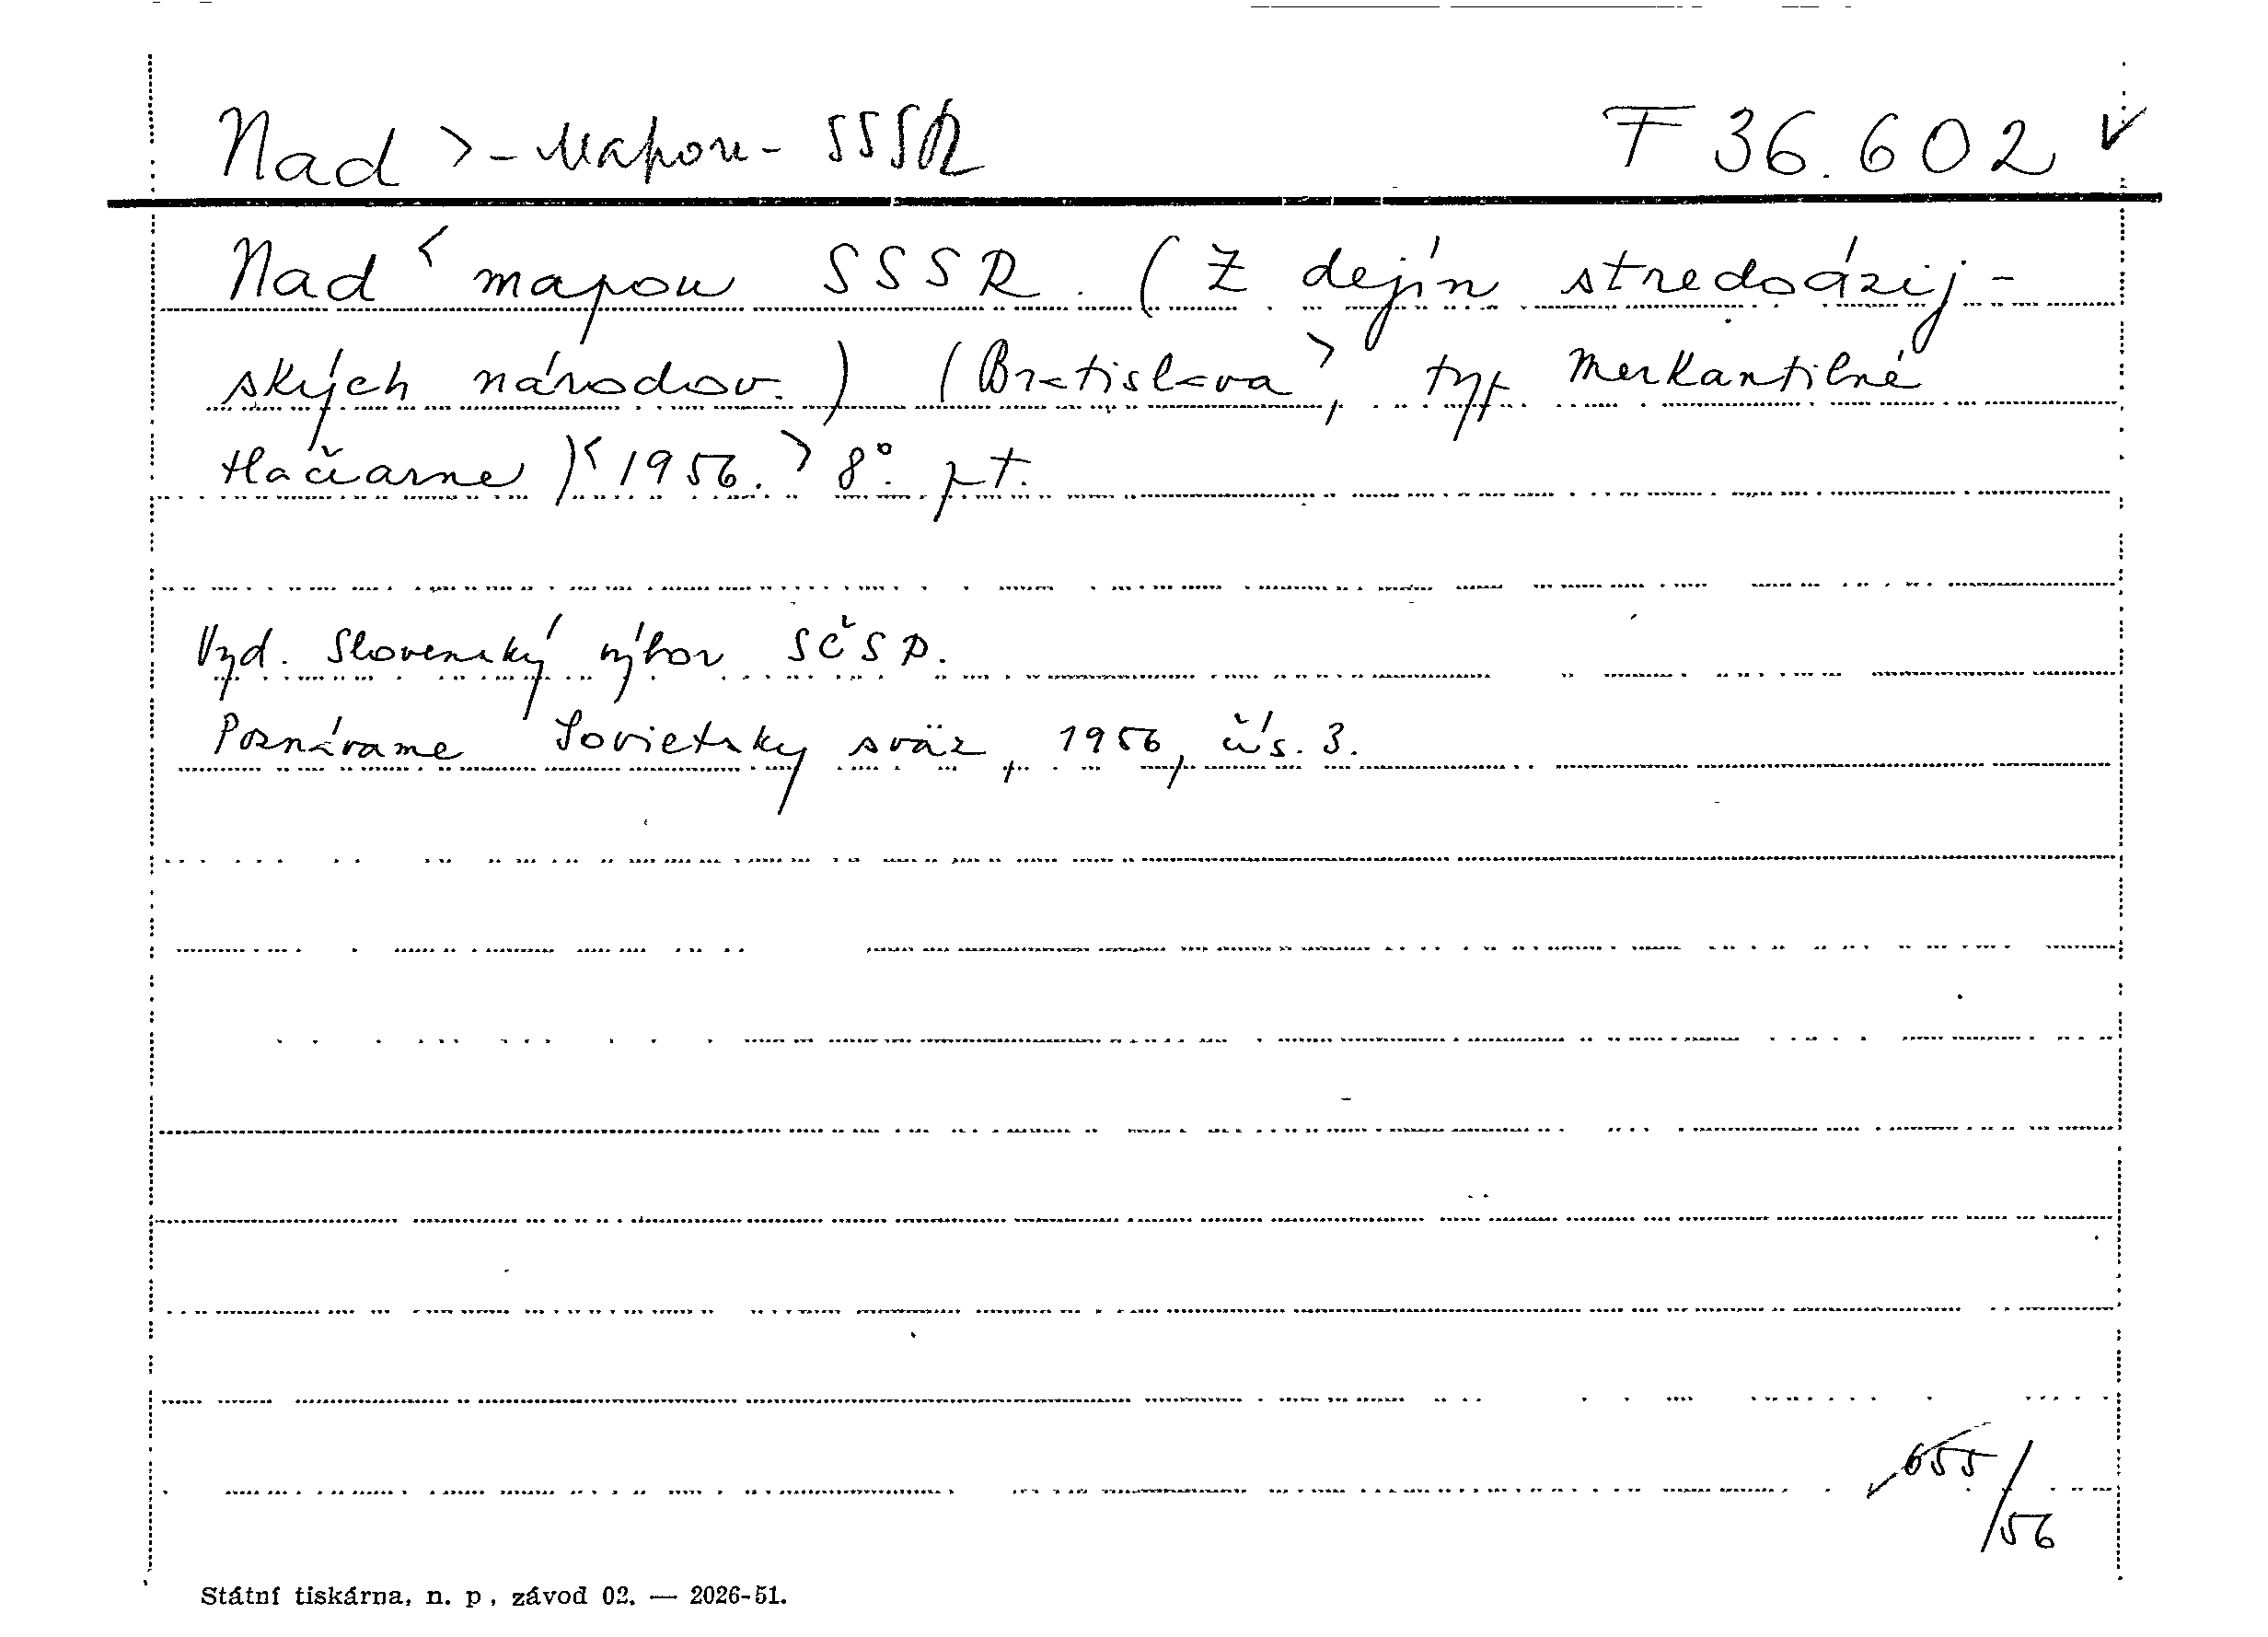 Nad >-Mapou- SSSR F 36.602 ✓
Nad < mapou SSSR. (Z dejín stredoázij-
ských národov.) (Bratislava>, typ Merkantilné
tlačiarne)<1956.> 8°. pt.
Vyd. Slovenský výbor SČSP.
Poznávame Sovietsky sväz, 1956, čís. 3.
655/56
Státní tiskárna, n. p., závod 02. — 2026-51.